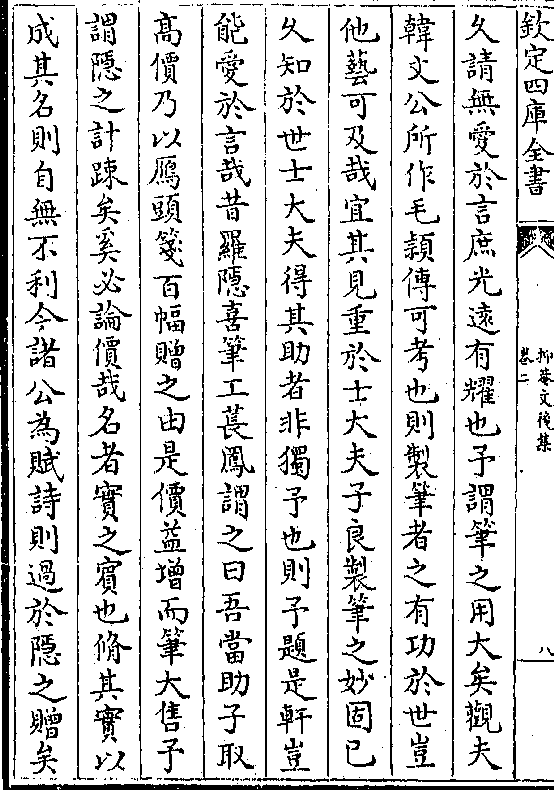 欽定四庫全書
抑菴文後集
卷二
八
久請無愛於言庶光遠有耀也予謂筆之用大矣觀夫
韓文公所作毛頴傳可考也則製筆者之有功於世豈
他藝可及哉宜其見重於士大夫子良製筆之妙固已
久知於世士大夫得其助者非獨予也則予題是軒豈
能愛於言哉昔羅隠喜筆工萇鳳謂之曰吾當助子取
高價乃以鴈頭箋百幅贈之由是價益增而筆大售予
謂隠之計踈矣奚必論價哉名者實之賓也脩其實以
成其名則自無不利今諸公為賦詩則過於隠之贈矣